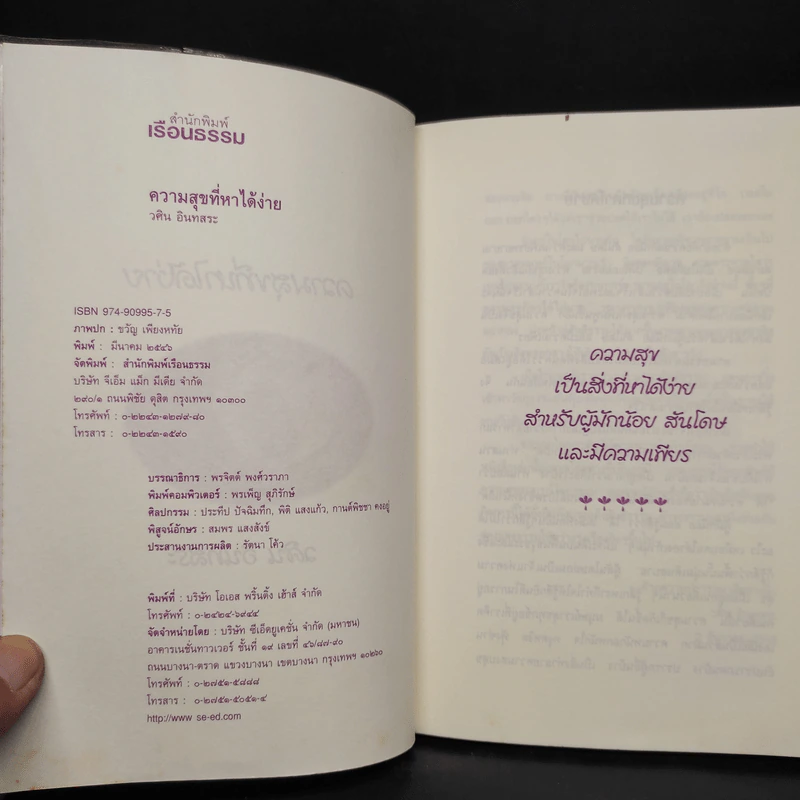 สำนักพิมพ์
เรือนธรรม
ความสุขที่หาได้ง่าย
วศิน อินทสระ
ISBN 974-90995-7-5
ภาพปก : ขวัญ เพียงหทัย
พิมพ์ : มีนาคม ๒๕๔๖
จัดพิมพ์ : สำนักพิมพ์เรือนธรรม
บริษัท จีเอ็ม แม็ก มีเดีย จำกัด
๒๙๐/๑ ถนนพิชัย ดุสิต กรุงเทพฯ ๑๐๓๐๐
โทรศัพท์ : ๐-๒๒๔๓-๑๒๗๙-๘๐
โทรสาร : ๐-๒๒๔๓-๑๕๙๐
บรรณาธิการ : พรจิตต์ พงศ์วราภา
พิมพ์คอมพิวเตอร์ : พรเพ็ญ สุภิรักษ์
ศิลปกรรม : ประทีป ปัจฉิมทึก, พิติ แสงแก้ว, กานต์พิชชา คงอยู่
พิสูจน์อักษร : สมพร แสงสังข์
ประสานงานการผลิต : รัตนา โค้ว
พิมพ์ที่ : บริษัท โอเอส พริ้นติ้ง เฮ้าส์ จำกัด
โทรศัพท์ : ๐-๒๔๒๔-๖๙๔๔
จัดจำหน่ายโดย : บริษัท ซีเอ็ดยูเคชั่น จำกัด (มหาชน)
อาคารเนชั่นทาวเวอร์ ชั้นที่ ๑๙ เลขที่ ๔๖/๘๗-๙๐
ถนนบางนา-ตราด แขวงบางนา เขตบางนา กรุงเทพฯ ๑๐๒๖๐
โทรศัพท์ : ๐-๒๗๕๑-๕๘๘๘
โทรสาร : ๐-๒๗๕๑-๕๐๕๑-๔
http://www se-ed.com
ความสุข
เป็นสิ่งที่หาได้ง่าย
สำหรับผู้มักน้อย สันโดษ
และมีความเพียร